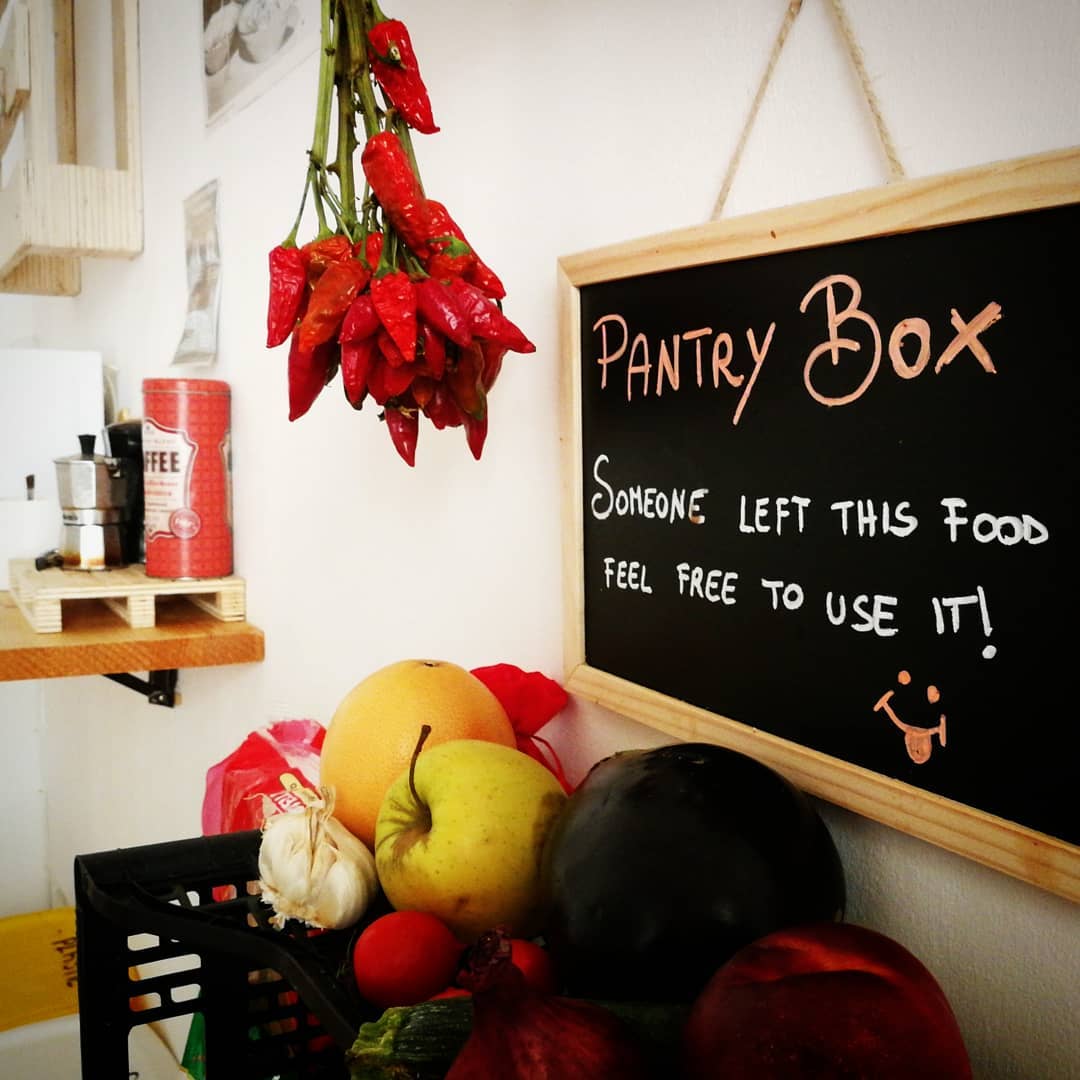 PANTRY BOX
SOMEONE LEFT THIS FOOD
FEEL FREE TO USE IT!
FFEE